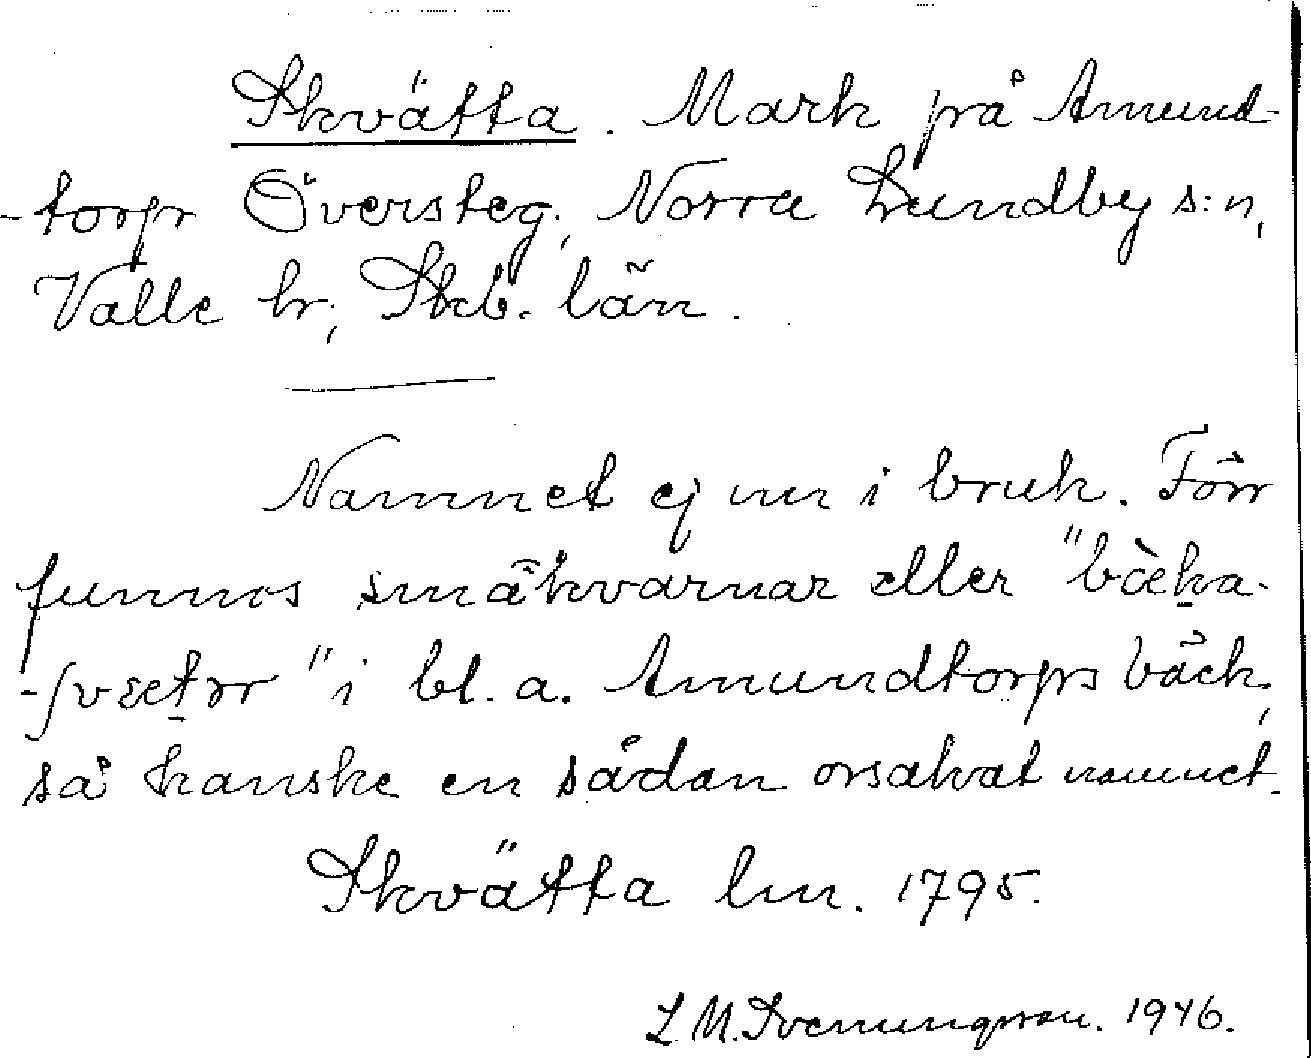 Skvätta. Mark på Amund-
-torp Översteg, Norra Lundby s:n,
Valle hr, Skb. län.
Namnet ej nu i bruk. Förr
funnos småkvarnar eller "bäka-
-ſvætər" i bl. a. Amundtorps bäck,
så kanske en sådan orsakat namnet.
Skvätta lm. 1795.
L M. Svenungsson. 1946.